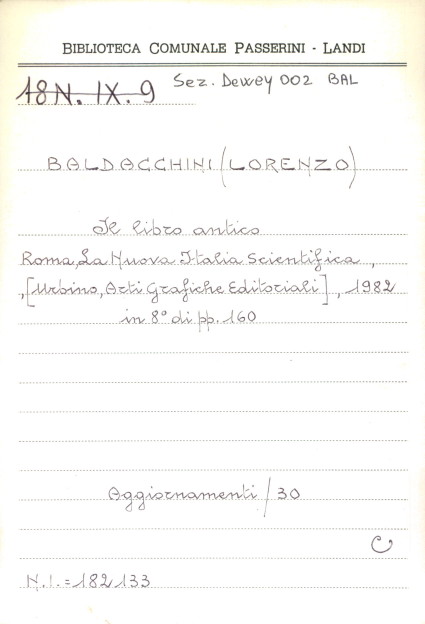 BIBLIOTECA COMUNALE PASSERINI - LANDI
18N. IX. 9 Sez. Dewey 002 BAL
BALDACCHINI (LORENZO)
Il libro antico
Roma, La Nuova Italia Scientifica ,
,[Urbino, Arti Grafiche Editoriali] , 1982
in 8° di pp. 160
Aggiornamenti / 30
C
N.I. = 182133